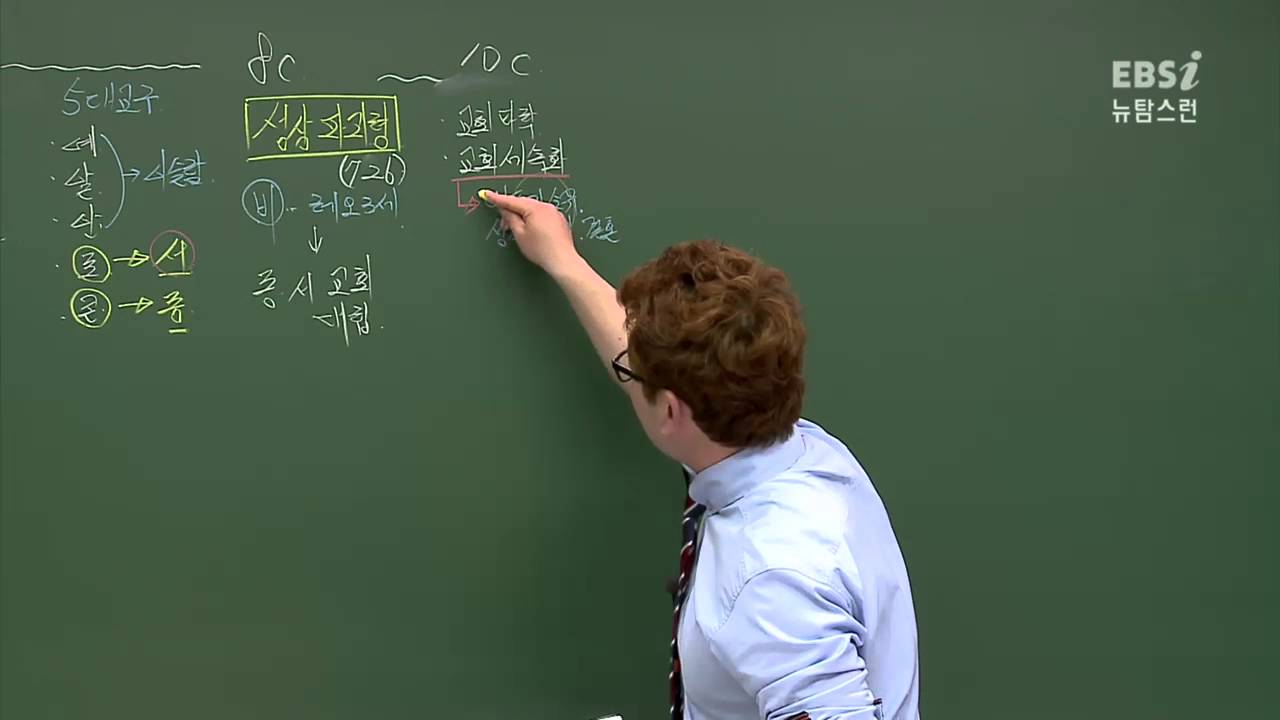 8C
10C
EBSi
뉴탐스런
5대교구
· 예
· 알
· 안
→ 이슬람
· 롬 → 서
· 콘 → 동
성상 파괴령
(726)
비 - 레오3세
↓
동.서 교회
대립
· 교회 타락
· 교회 세속화
결혼